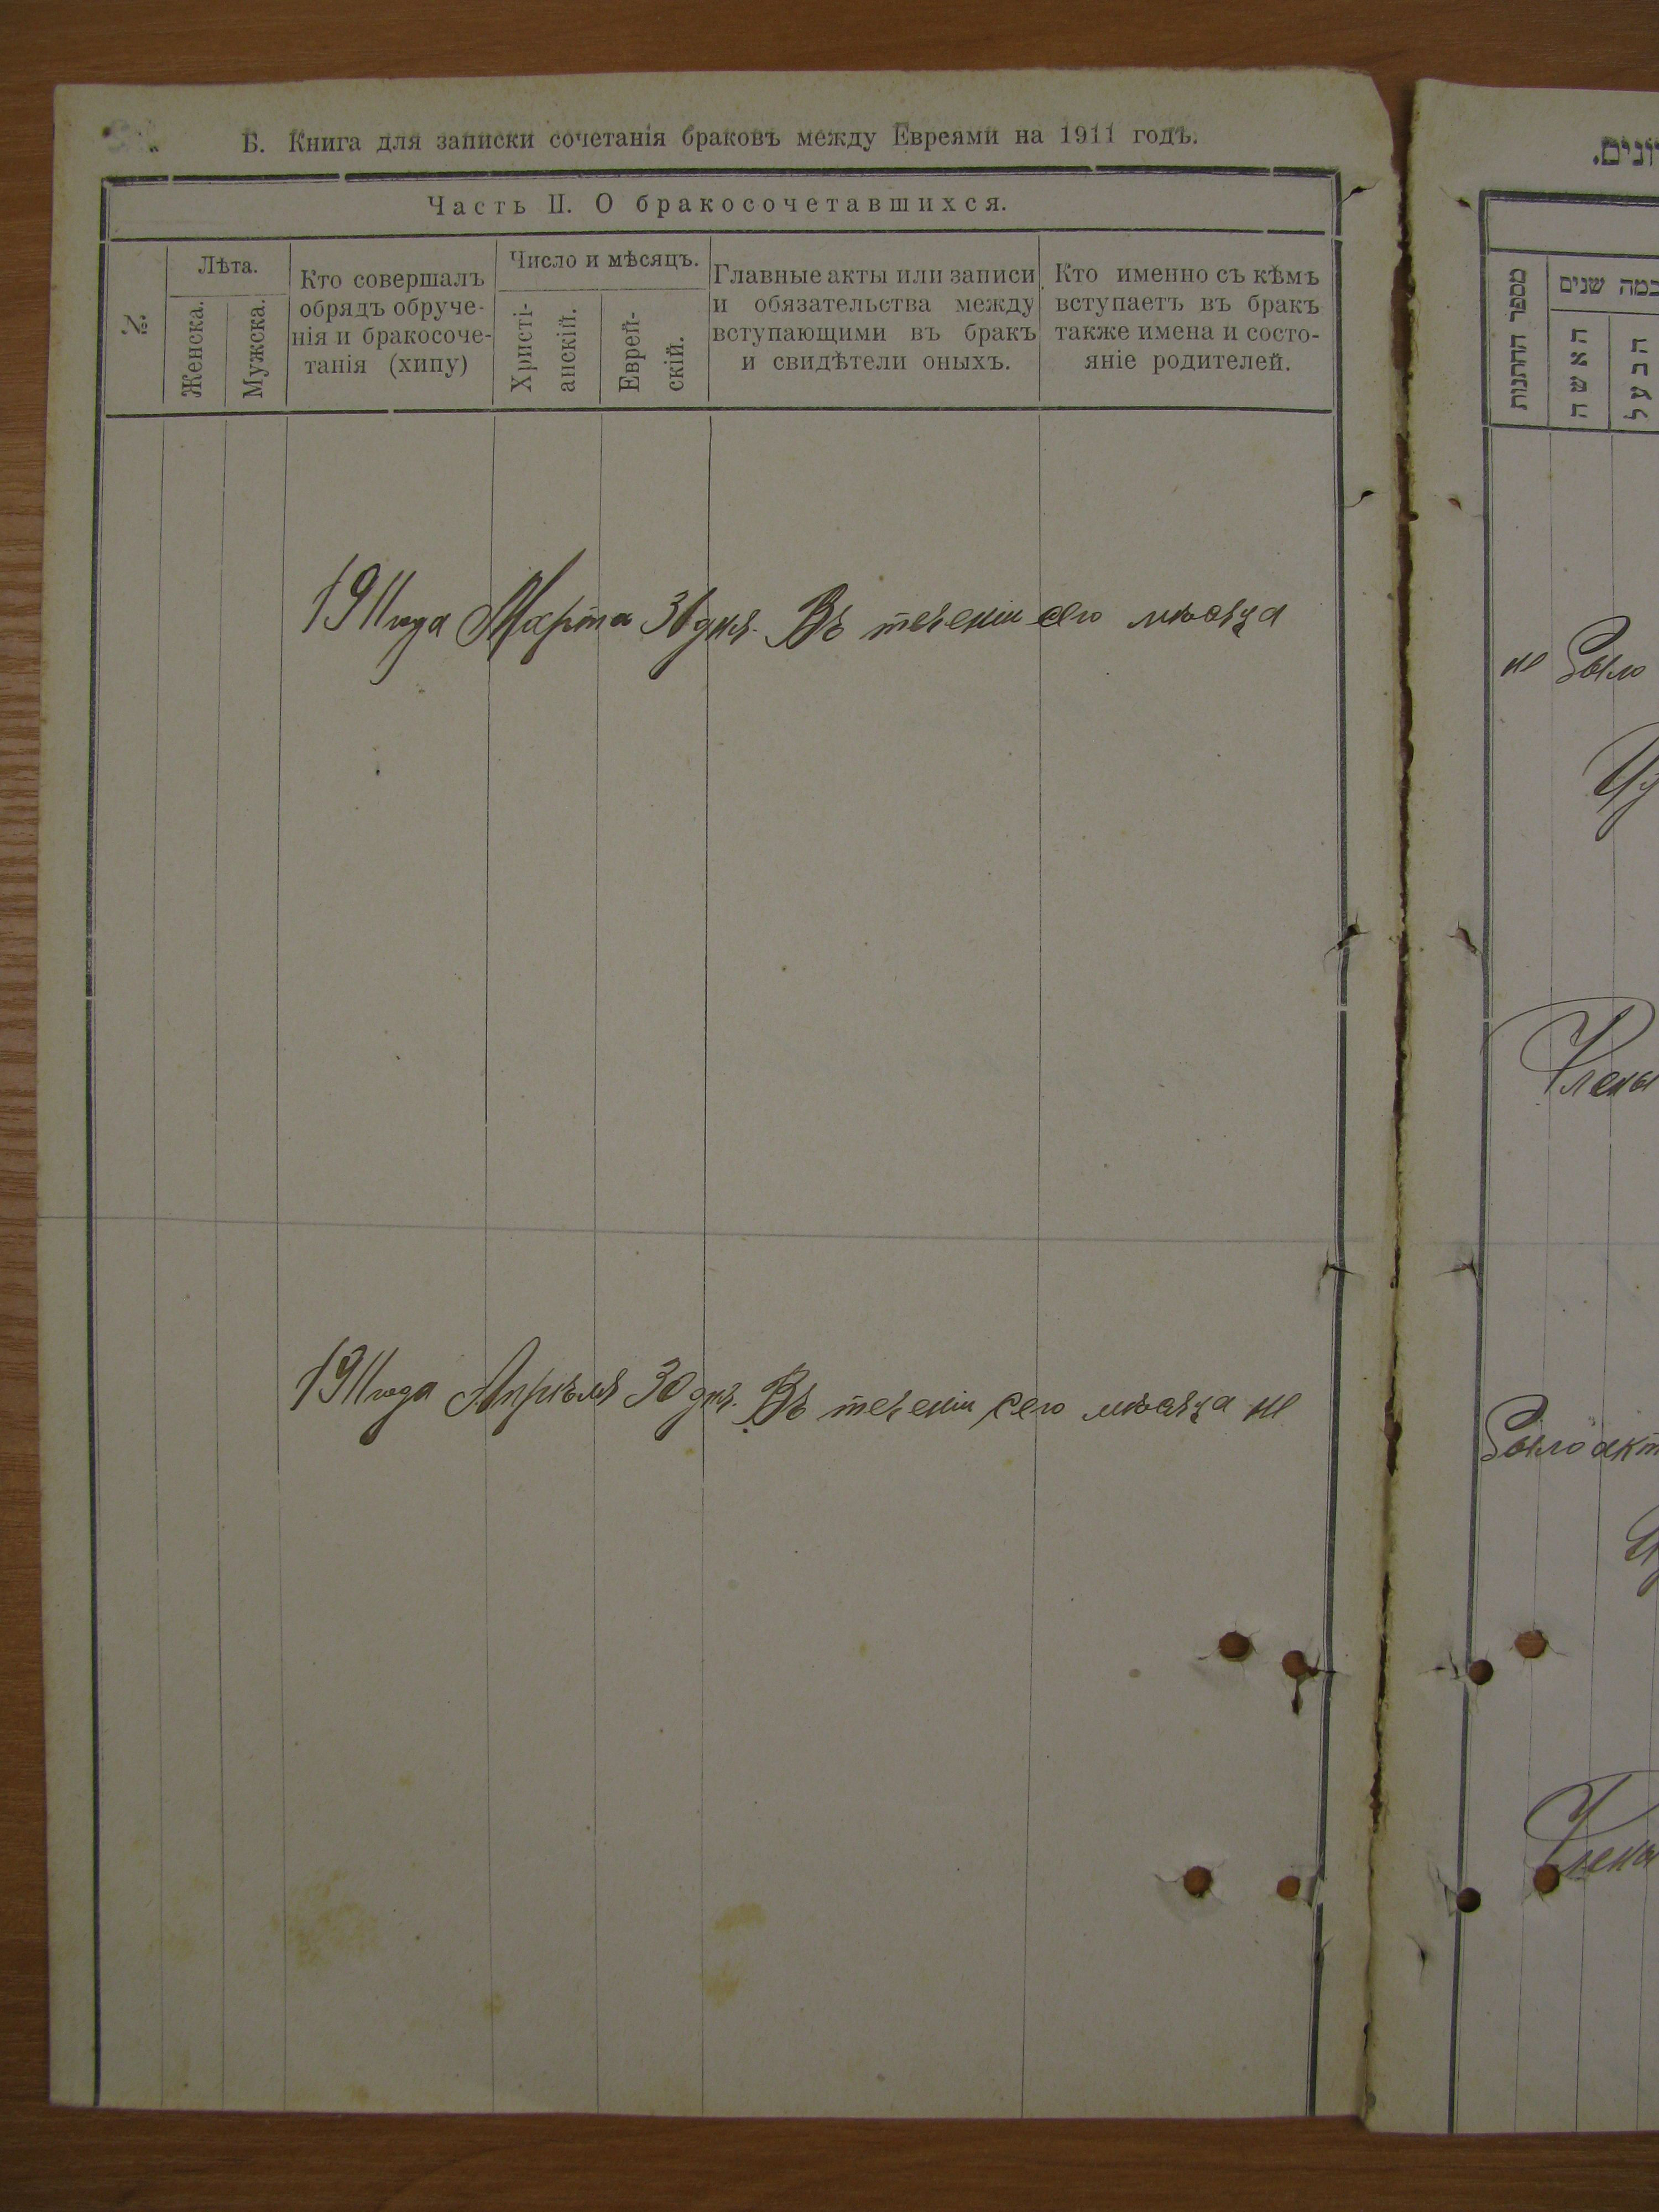 Б. Книга для записки сочетанія браковъ между Евреями на 1911 годъ.
Часть II. О бракосочетавшихся.
№.
Лѣта.
Женска.
Мужска.
Кто совершалъ
обрядъ обруче-
нія и бракосоче-
танія (хипу)
Число и мѣсяцъ.
Христі-
анскій.
Еврей-
скій.
Главные акты или записи
и обязательства между
вступающими въ бракъ
и свидѣтели оныхъ.
Кто именно съ кѣмъ
вступаетъ въ бракъ
также имена и состо-
яніе родителей.
1911 года Марта 31 дня. Въ теченіи сего мѣсяца
1911 года Апрѣля 30 дня. Въ теченіи сего мѣсяца не
מספר החתנות
כמה שנים
האשה
הבעל
не было
Члены
Было акт
Члены